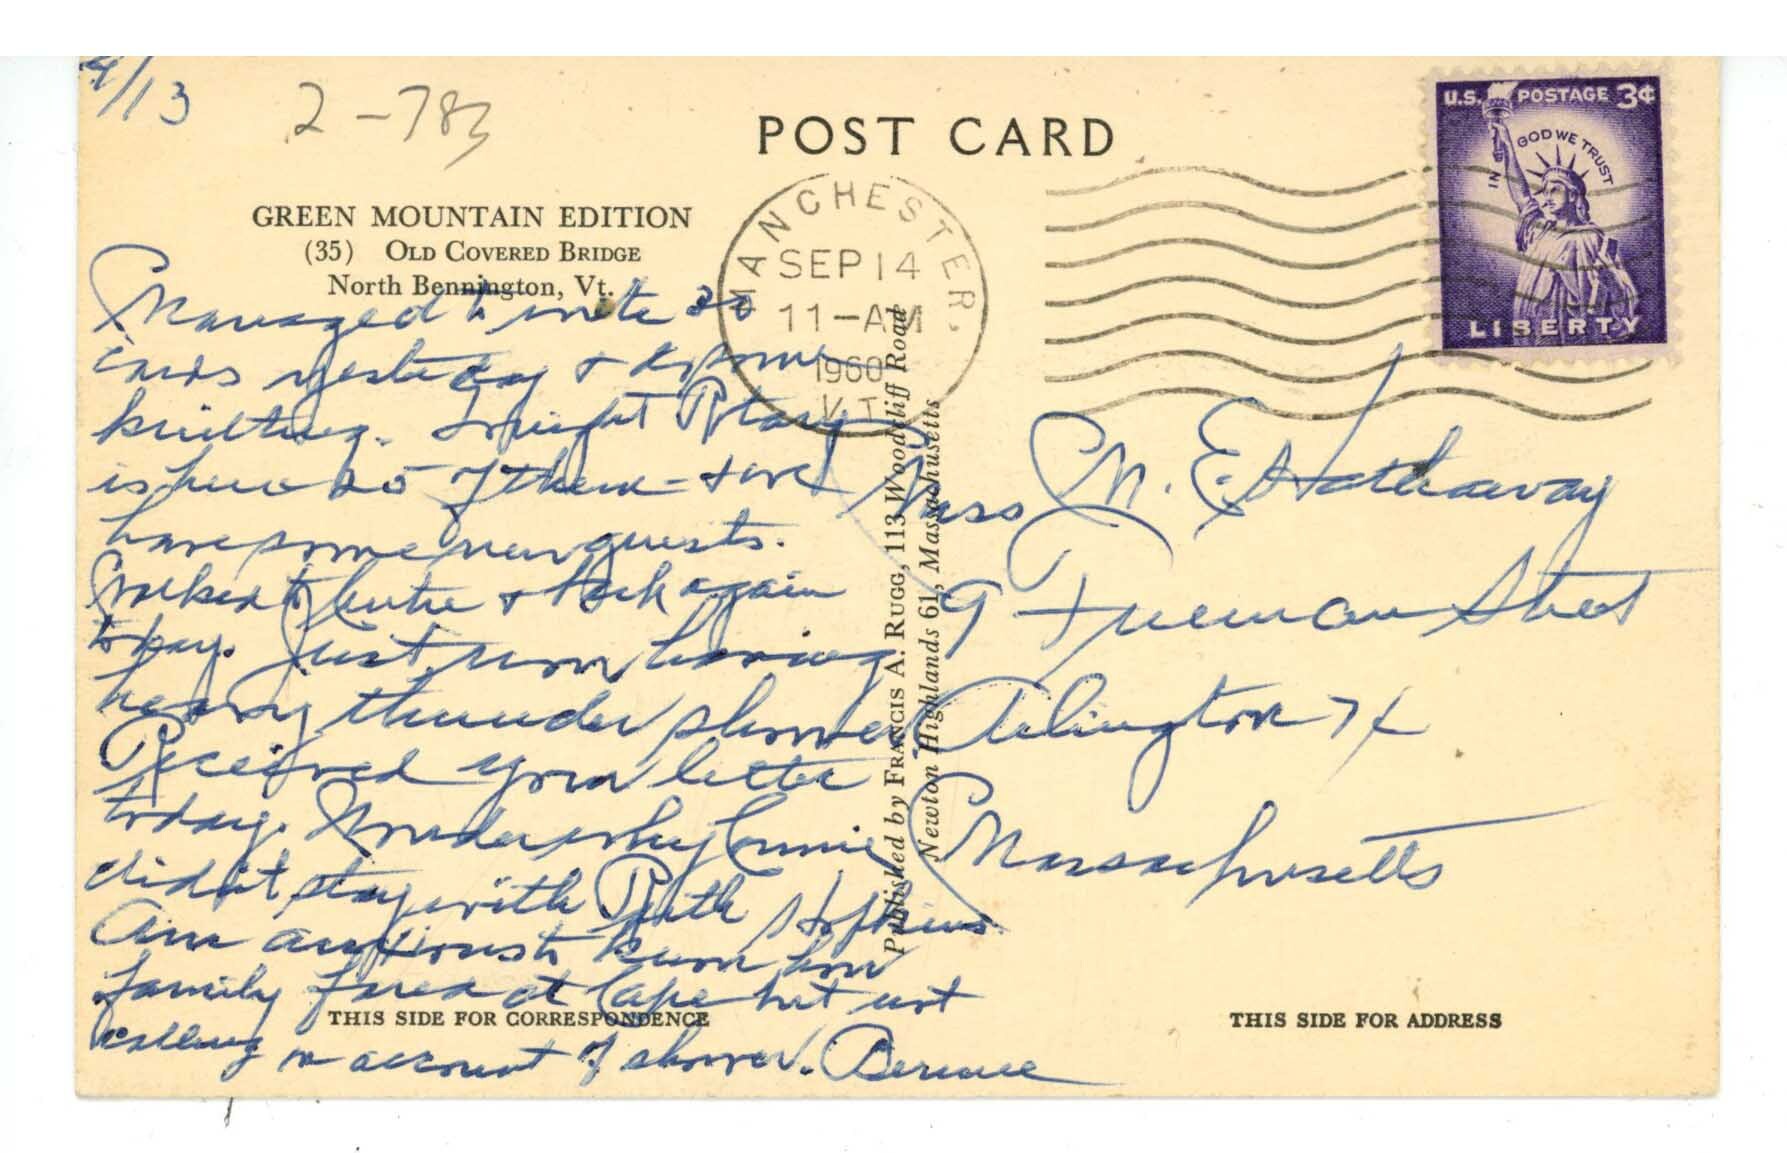 9/13
2-783
POST CARD
GREEN MOUNTAIN EDITION
(35) OLD COVERED BRIDGE
North Bennington, Vt.
U.S. POSTAGE 3¢
IN GOD WE TRUST
LIBERTY
MANCHESTER.
SEP 14
11-AM
1960
VT.
Managed to write 30
cards yesterday & do some
knitting. Tonight Rotary
is here 25 of them - & we
have some new guests.
Walked to Centre & back again
today. Just now having
heavy thunder shower.
Received your letter
today. Wonder why Connie
didn't stay with Ruth Hopkins.
Am anxious to know how
family fared at Cape but not
calling on account of shower. Bernice
Miss M. E. Hathaway
9 Freeman Street
Arlington 74
Massachusetts
Published by FRANCIS A. RUGG, 113 Woodcliff Road
Newton Highlands 61, Massachusetts
THIS SIDE FOR CORRESPONDENCE
THIS SIDE FOR ADDRESS